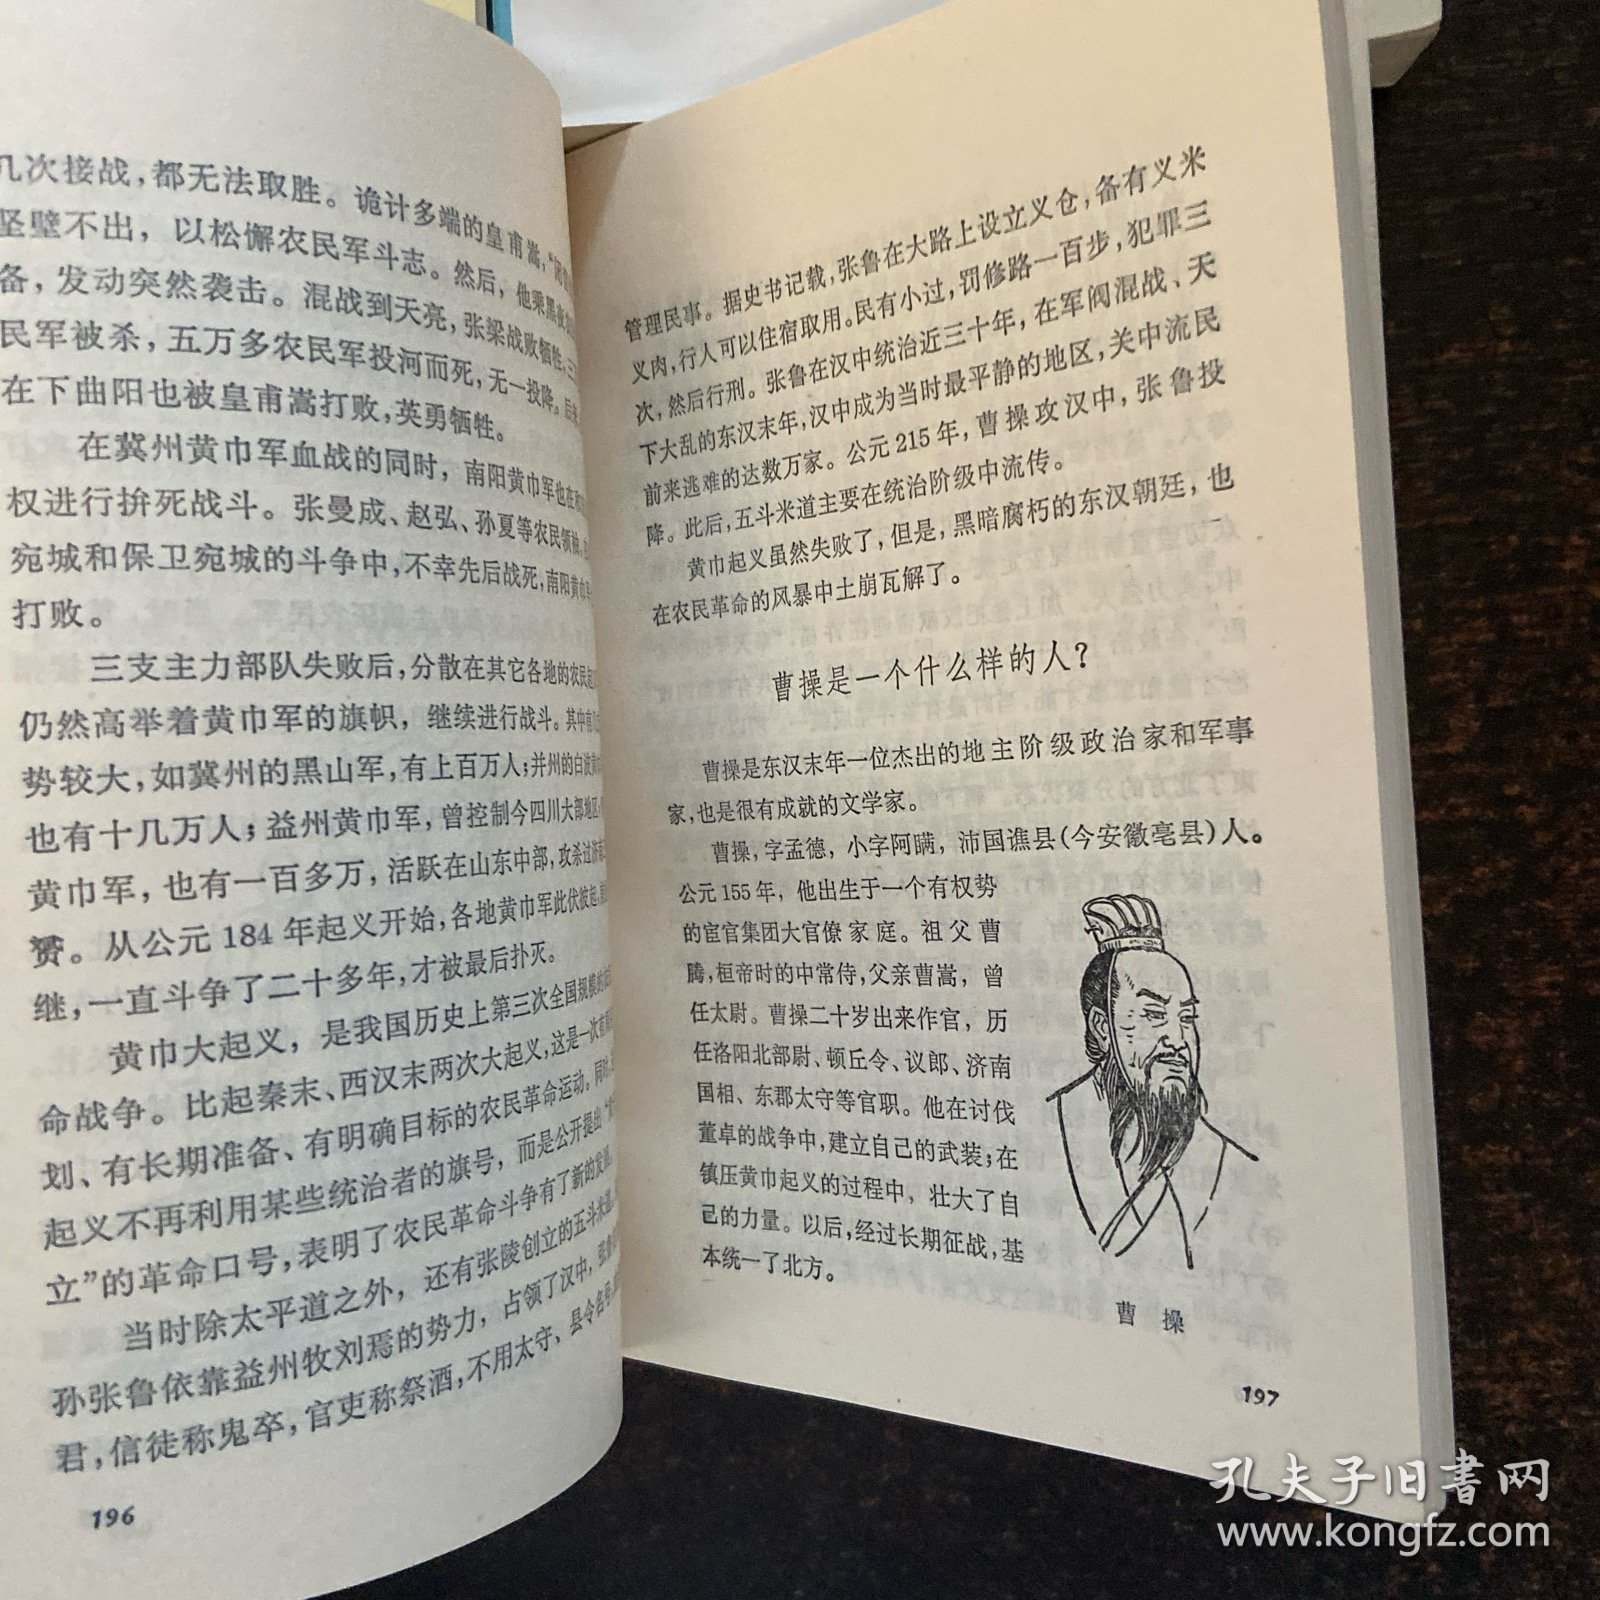 几次接战，都无法取胜。诡计多端的皇甫嵩，“闭营
坚壁不出，以松懈农民军斗志。然后，他乘黑夜
备，发动突然袭击。混战到天亮，张梁战败牺牲，三
民军被杀，五万多农民军投河而死，无一投降。后来
在下曲阳也被皇甫嵩打败，英勇牺牲。
在冀州黄巾军血战的同时，南阳黄巾军也在
权进行拚死战斗。张曼成、赵弘、孙夏等农民领袖，
宛城和保卫宛城的斗争中，不幸先后战死，南阳黄巾
打败。
三支主力部队失败后，分散在其它各地的农民
仍然高举着黄巾军的旗帜，继续进行战斗。其中有
势较大，如冀州的黑山军，有上百万人；并州的白波黄
也有十几万人；益州黄巾军，曾控制今四川大部地区
黄巾军，也有一百多万，活跃在山东中部，攻杀过济南
赟。从公元184年起义开始，各地黄巾军此伏彼起，
继，一直斗争了二十多年，才被最后扑灭。
黄巾大起义，是我国历史上第三次全国规模的
命战争。比起秦末、西汉末两次大起义，这是一次有
划、有长期准备、有明确目标的农民革命运动。同时，
起义不再利用某些统治者的旗号，而是公开提出“
立”的革命口号，表明了农民革命斗争有了新的发展。
当时除太平道之外，还有张陵创立的五斗米道。
孙张鲁依靠益州牧刘焉的势力，占领了汉中，张鲁
君，信徒称鬼卒，官吏称祭酒，不用太守、县令名号，
196
管理民事。据史书记载，张鲁在大路上设立义仓，备有义米
义肉，行人可以住宿取用。民有小过，罚修路一百步，犯罪三
次，然后行刑。张鲁在汉中统治近三十年，在军阀混战、天
下大乱的东汉末年，汉中成为当时最平静的地区，关中流民
前来逃难的达数万家。公元215年，曹操攻汉中，张鲁投
降。此后，五斗米道主要在统治阶级中流传。
黄巾起义虽然失败了，但是，黑暗腐朽的东汉朝廷，也
在农民革命的风暴中土崩瓦解了。
曹操是一个什么样的人？
曹操是东汉末年一位杰出的地主阶级政治家和军事
家，也是很有成就的文学家。
曹操，字孟德，小字阿瞒，沛国谯县（今安徽亳县）人。
公元155年，他出生于一个有权势
的宦官集团大官僚家庭。祖父曹
腾，桓帝时的中常侍，父亲曹嵩，曾
任太尉。曹操二十岁出来作官，历
任洛阳北部尉、顿丘令、议郎、济南
国相、东郡太守等官职。他在讨伐
董卓的战争中，建立自己的武装；在
镇压黄巾起义的过程中，壮大了自
己的力量。以后，经过长期征战，基
本统一了北方。
曹 操
197
孔夫子旧書网
www.kongfz.com